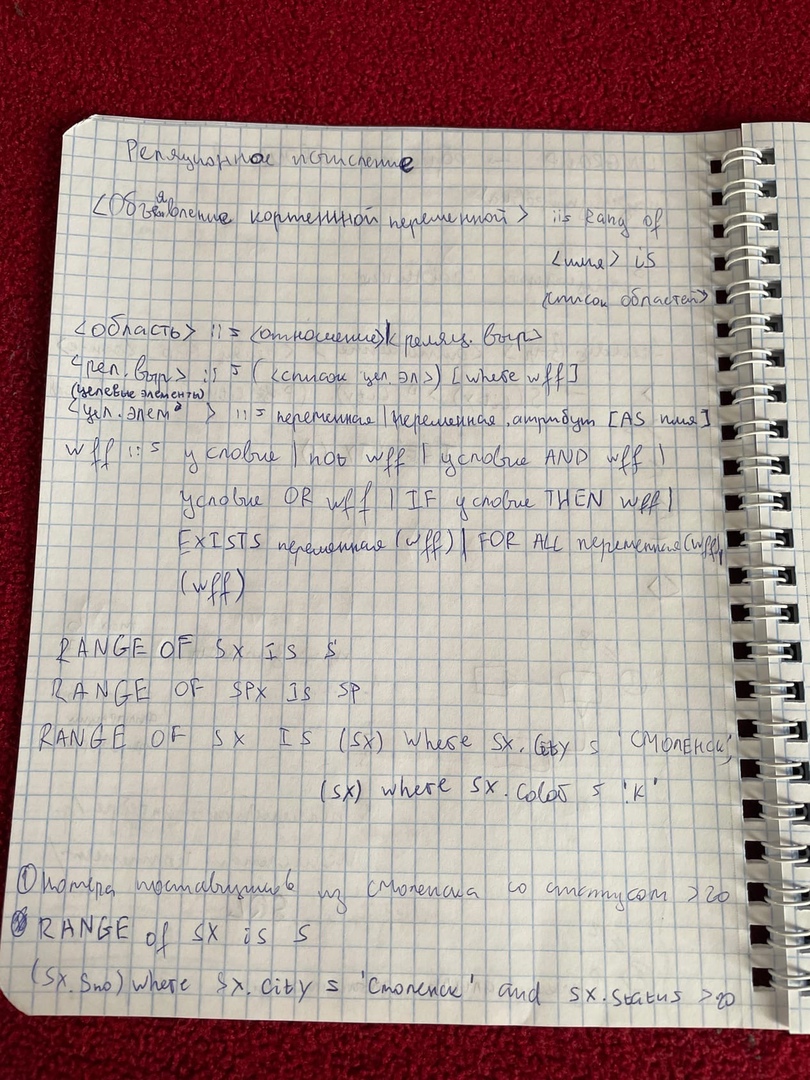 Реляционное исчисление
<Объявление кортежной переменной> ::= Rang of
<имя> is
<список областей>
<область> ::= <отношение>|<реляц. выр>
<рел. выр> ::= (<список цел. эл>) [where wff]
(целевые элементы)
<цел. элем> ::= переменная | переменная.атрибут [AS имя]
wff ::= условие | not wff | условие AND wff |
условие OR wff | IF условие THEN wff |
EXISTS переменная (wff) | FOR ALL переменная (wff) |
(wff)
RANGE OF SX IS S
RANGE OF SPX IS SP
RANGE OF SX IS (SX) where SX.City = 'СМОЛЕНСК',
(SX) where SX.Color = 'К'
① Номера поставщиков из Смоленска со статусом > 20
RANGE of SX is S
(SX.Sno) where SX.City = 'Смоленск' and SX.Status > 20